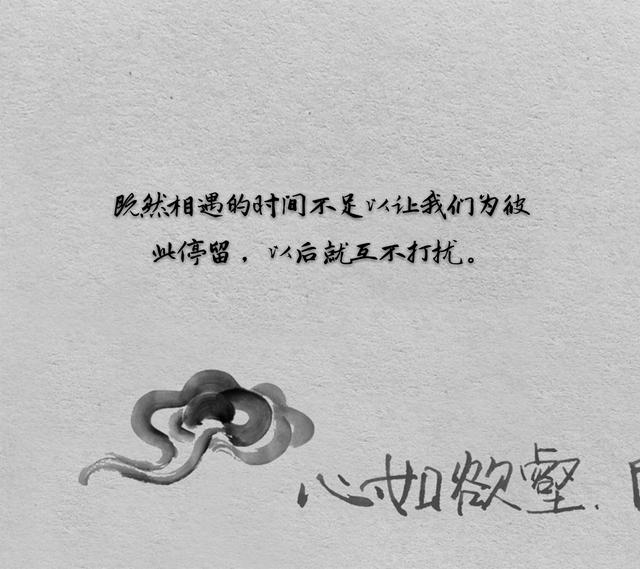 既然相遇的时间不足以让我们为彼
此停留，以后就互不打扰。
心如欲壑.